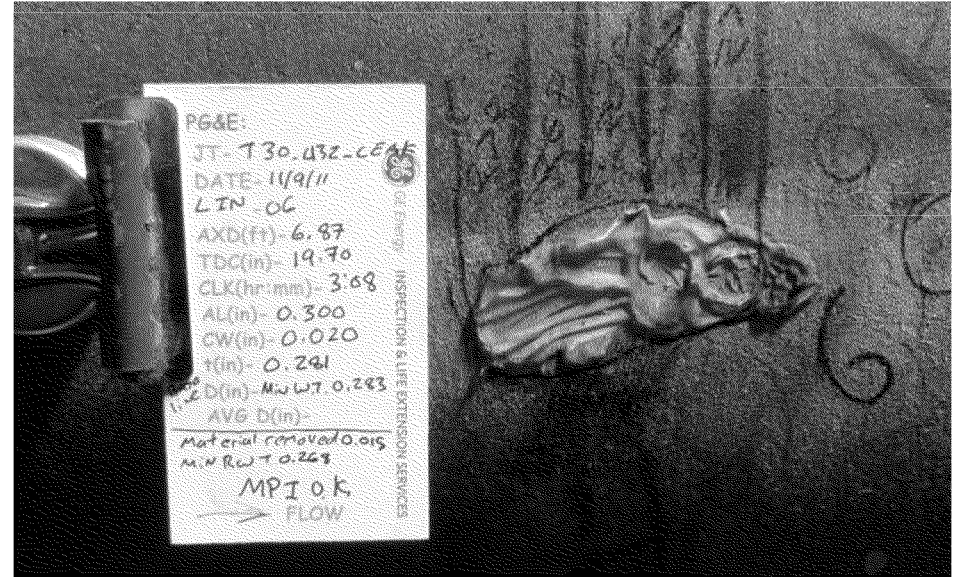 PG&E:
JT- T30.432-
DATE- 11/9/11
LIN-06
AXD(ft)- 6.87
TDC(in)- 19.70
CLK(hr:mm)- 3:08
AL(in)- 0.300
CW(in)- 0.020
t(in)- 0.281
D(in)- Min WT. 0.283
AVG D(in)-
Material removed 0.015
MIN RWT 0.268
MPI OK
FLOW
GE Energy INSPECTION & LIFE EXTENSION SERVICES